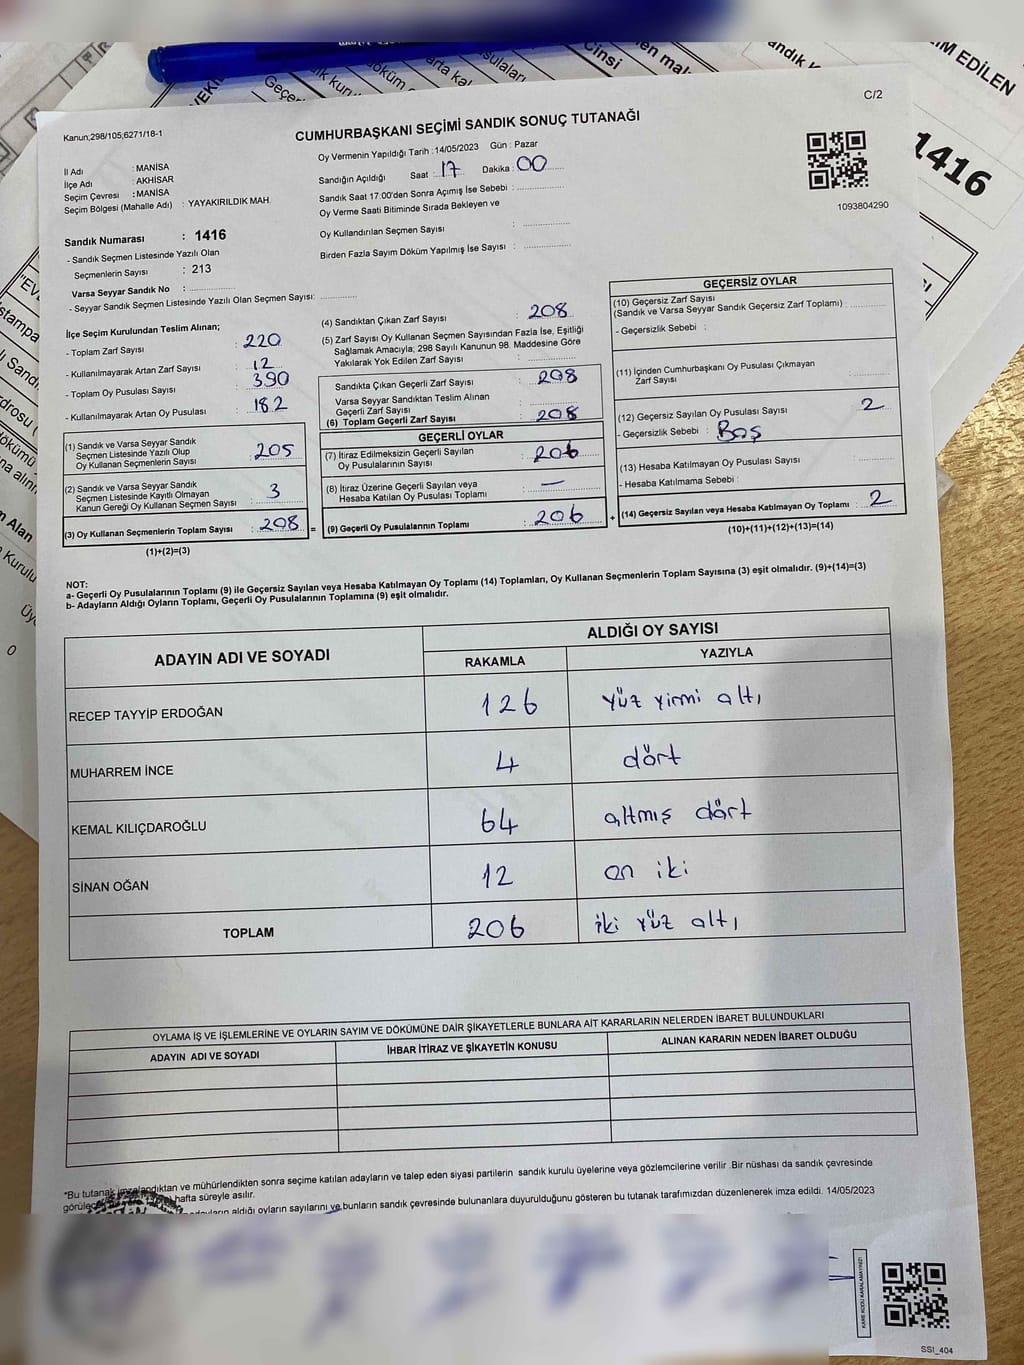 IM EDİLEN
1416
C/2
Kanun;298/105;6271/18-1
CUMHURBAŞKANI SEÇİMİ SANDIK SONUÇ TUTANAĞI
İl Adı : MANİSA
İlçe Adı : AKHİSAR
Seçim Çevresi : MANİSA
Seçim Bölgesi (Mahalle Adı) : YAYAKIRILDIK MAH.
Oy Vermenin Yapıldığı Tarih : 14/05/2023 Gün : Pazar
Sandığın Açıldığı Saat : 17 Dakika : 00
Sandık Saat 17.00'den Sonra Açımış İse Sebebi :
Oy Verme Saati Bitiminde Sırada Bekleyen ve
Oy Kullandırılan Seçmen Sayısı :
Birden Fazla Sayım Döküm Yapılmış İse Sayısı :
1093804290
Sandık Numarası : 1416
- Sandık Seçmen Listesinde Yazılı Olan
Seçmenlerin Sayısı : 213
Varsa Seyyar Sandık No :
- Seyyar Sandık Seçmen Listesinde Yazılı Olan Seçmen Sayısı:
İlçe Seçim Kurulundan Teslim Alınan;
- Toplam Zarf Sayısı : 220
- Kullanılmayarak Artan Zarf Sayısı : 12
- Toplam Oy Pusulası Sayısı : 390
- Kullanılmayarak Artan Oy Pusulası : 182
(1) Sandık ve Varsa Seyyar Sandık
Seçmen Listesinde Yazılı Olup
Oy Kullanan Seçmenlerin Sayısı : 205
(2) Sandık ve Varsa Seyyar Sandık
Seçmen Listesinde Kayıtlı Olmayan
Kanun Gereği Oy Kullanan Seçmen Sayısı : 3
(3) Oy Kullanan Seçmenlerin Toplam Sayısı : 208 =
(1)+(2)=(3)
(4) Sandıktan Çıkan Zarf Sayısı : 208
(5) Zarf Sayısı Oy Kullanan Seçmen Sayısından Fazla İse, Eşitliği
Sağlamak Amacıyla; 298 Sayılı Kanunun 98. Maddesine Göre
Yakılarak Yok Edilen Zarf Sayısı :
Sandıkta Çıkan Geçerli Zarf Sayısı : 208
Varsa Seyyar Sandıktan Teslim Alınan
Geçerli Zarf Sayısı :
(6) Toplam Geçerli Zarf Sayısı : 208
GEÇERLİ OYLAR
(7) İtiraz Edilmeksizin Geçerli Sayılan
Oy Pusulalarının Sayısı : 206
(8) İtiraz Üzerine Geçerli Sayılan veya
Hesaba Katılan Oy Pusulası Toplamı : —
(9) Geçerli Oy Pusulalarının Toplamı : 206 +
GEÇERSİZ OYLAR
(10) Geçersiz Zarf Sayısı
(Sandık ve Varsa Seyyar Sandık Geçersiz Zarf Toplamı) :
- Geçersizlik Sebebi :
(11) İçinden Cumhurbaşkanı Oy Pusulası Çıkmayan
Zarf Sayısı :
(12) Geçersiz Sayılan Oy Pusulası Sayısı : 2
- Geçersizlik Sebebi : Boş
(13) Hesaba Katılmayan Oy Pusulası Sayısı :
- Hesaba Katılmama Sebebi :
(14) Geçersiz Sayılan veya Hesaba Katılmayan Oy Toplamı : 2
(10)+(11)+(12)+(13)=(14)
NOT:
a- Geçerli Oy Pusulalarının Toplamı (9) ile Geçersiz Sayılan veya Hesaba Katılmayan Oy Toplamı (14) Toplamları, Oy Kullanan Seçmenlerin Toplam Sayısına (3) eşit olmalıdır. (9)+(14)=(3)
b- Adayların Aldığı Oyların Toplamı, Geçerli Oy Pusulalarının Toplamına (9) eşit olmalıdır.
ADAYIN ADI VE SOYADI
ALDIĞI OY SAYISI
RAKAMLA YAZIYLA
RECEP TAYYİP ERDOĞAN 126 yüz yirmi altı
MUHARREM İNCE 4 dört
KEMAL KILIÇDAROĞLU 64 altmış dört
SİNAN OĞAN 12 on iki
TOPLAM 206 iki yüz altı
OYLAMA İŞ VE İŞLEMLERİNE VE OYLARIN SAYIM VE DÖKÜMÜNE DAİR ŞİKAYETLERLE BUNLARA AİT KARARLARIN NELERDEN İBARET BULUNDUKLARI
ADAYIN ADI VE SOYADI İHBAR İTİRAZ VE ŞİKAYETİN KONUSU ALINAN KARARIN NEDEN İBARET OLDUĞU
*Bu tutanak imzalandıktan ve mühürlendikten sonra seçime katılan adayların ve talep eden siyasi partilerin sandık kurulu üyelerine veya gözlemcilerine verilir .Bir nüshası da sandık çevresinde
hafta süreyle asılır.
aldığı oyların sayılarını ve bunların sandık çevresinde bulunanlara duyurulduğunu gösteren bu tutanak tarafımızdan düzenlenerek imza edildi. 14/05/2023
KARE KODU KARALAMAYINIZ!
SSI_404